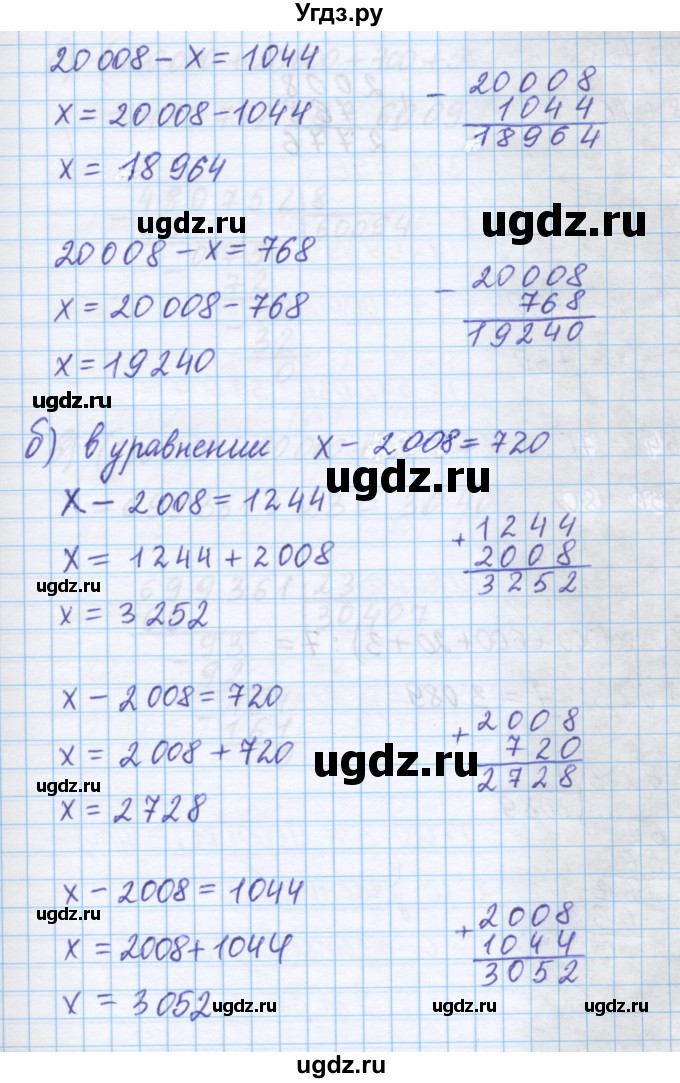 Угдз.ру
20 008 - x = 1044
x = 20 008 - 1044
x = 18 964
- 20008
1044
18964
ugdz.ru
ugdz.ru
20 008 - x = 768
x = 20 008 - 768
x = 19 240
- 20008
768
19240
ugdz.ru
ugdz.ru
б) в уравнении x - 2 008 = 720
ugdz.ru
x - 2 008 = 1244
x = 1244 + 2008
x = 3 252
+ 1244
2008
3252
ugdz.ru
x - 2 008 = 720
x = 2 008 + 720
x = 2 728
+ 2008
720
2728
ugdz.ru
ugdz.ru
x - 2008 = 1044
x = 2008 + 1044
x = 3 052
+ 2008
1044
3052
ugdz.ru
ugdz.ru
ugdz.ru
ugdz.ru